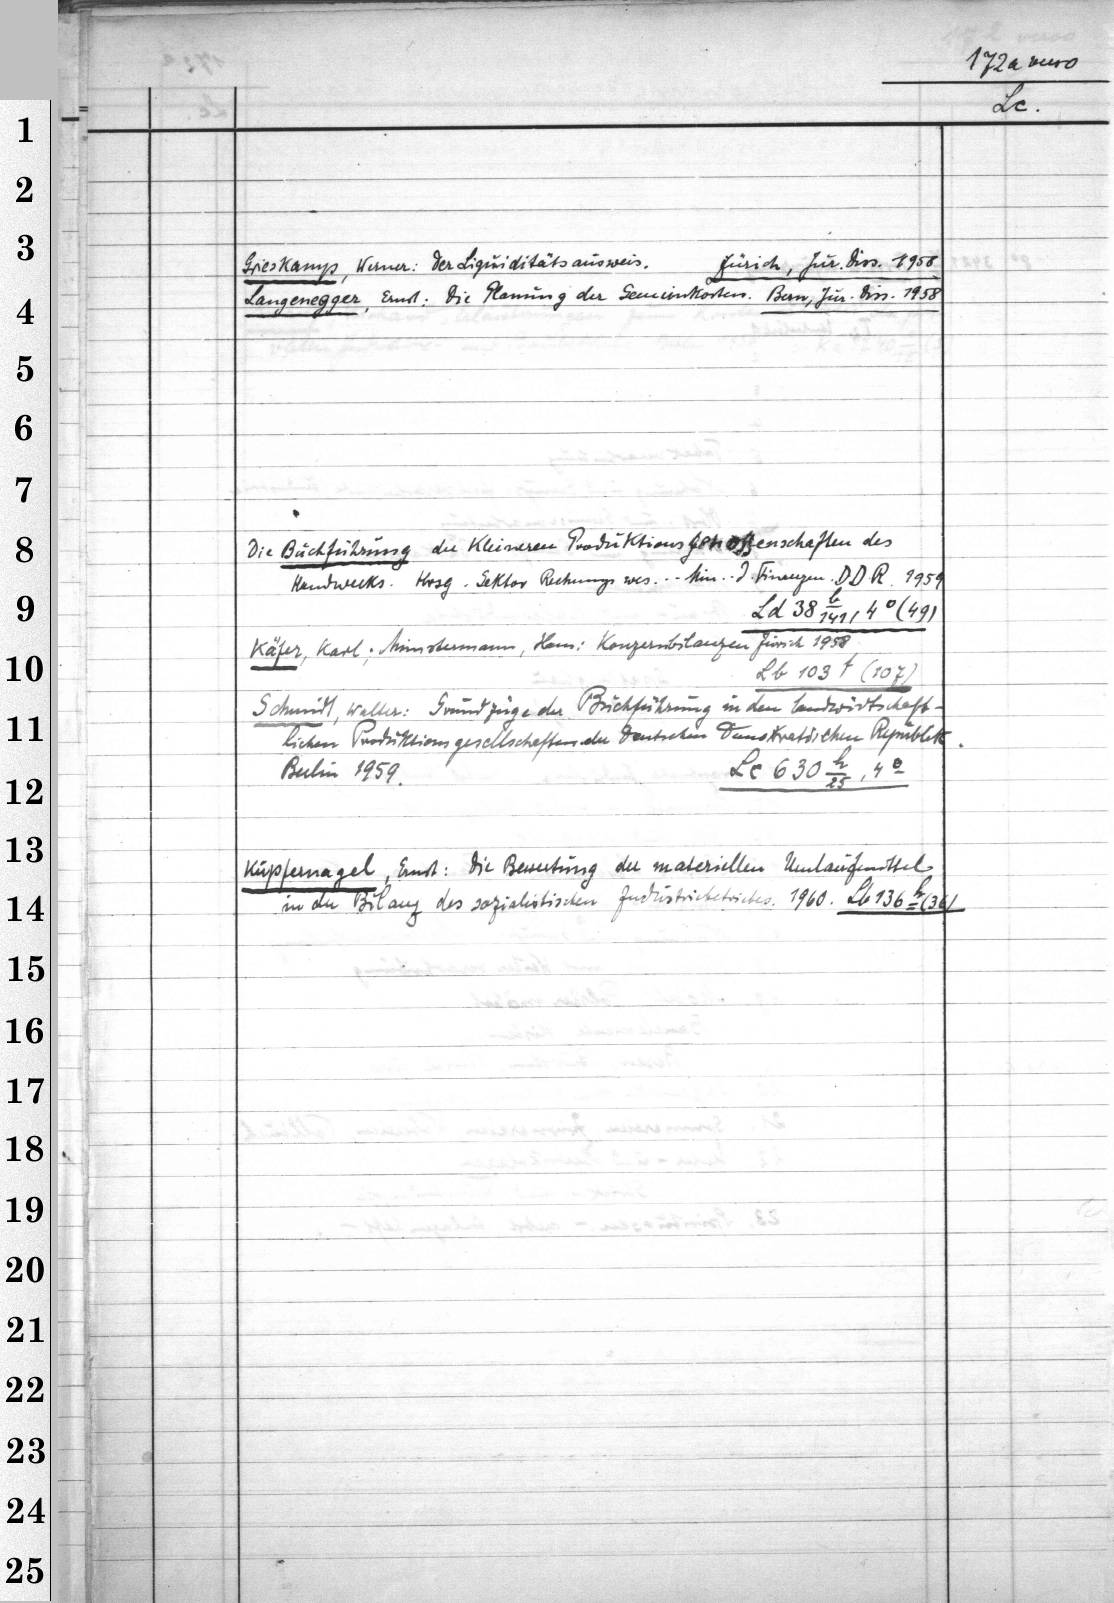 172a verso
Lc.
1
2
3
Grieskamp, Werner: Der Liquiditätsausweis. Zürich, Jur. Diss. 1958
Langenegger, Ernst: Die Planung der Gemeinkosten. Bern, Jur. Diss. 1958
4
5
6
7
8
Die Buchführung der kleineren Produktionsgenossenschaften des
Handwerks. Hrsg. Sektor Rechnungswes... Min. d. Finanzen. DDR. 1959
9
Ld 38 h/141, 4° (49)
Käfer, Karl; Münstermann, Hans: Konzernbilanzen Zürich 1958
10
Lb 103 t (107)
Schmidt, Walter: Grundzüge der Buchführung in den landwirtschaft-
11
lichen Produktionsgesellschaften der Deutschen Demokratischen Republik.
Berlin 1959.
Lc 630 h/25, 4°
12
13
Kupfernagel, Ernst: Die Bewertung der materiellen Umlaufmittel
14
in der Bilanz des sozialistischen Industriebetriebes. 1960. Lb 136 h (36)
15
16
17
18
19
20
21
22
23
24
25